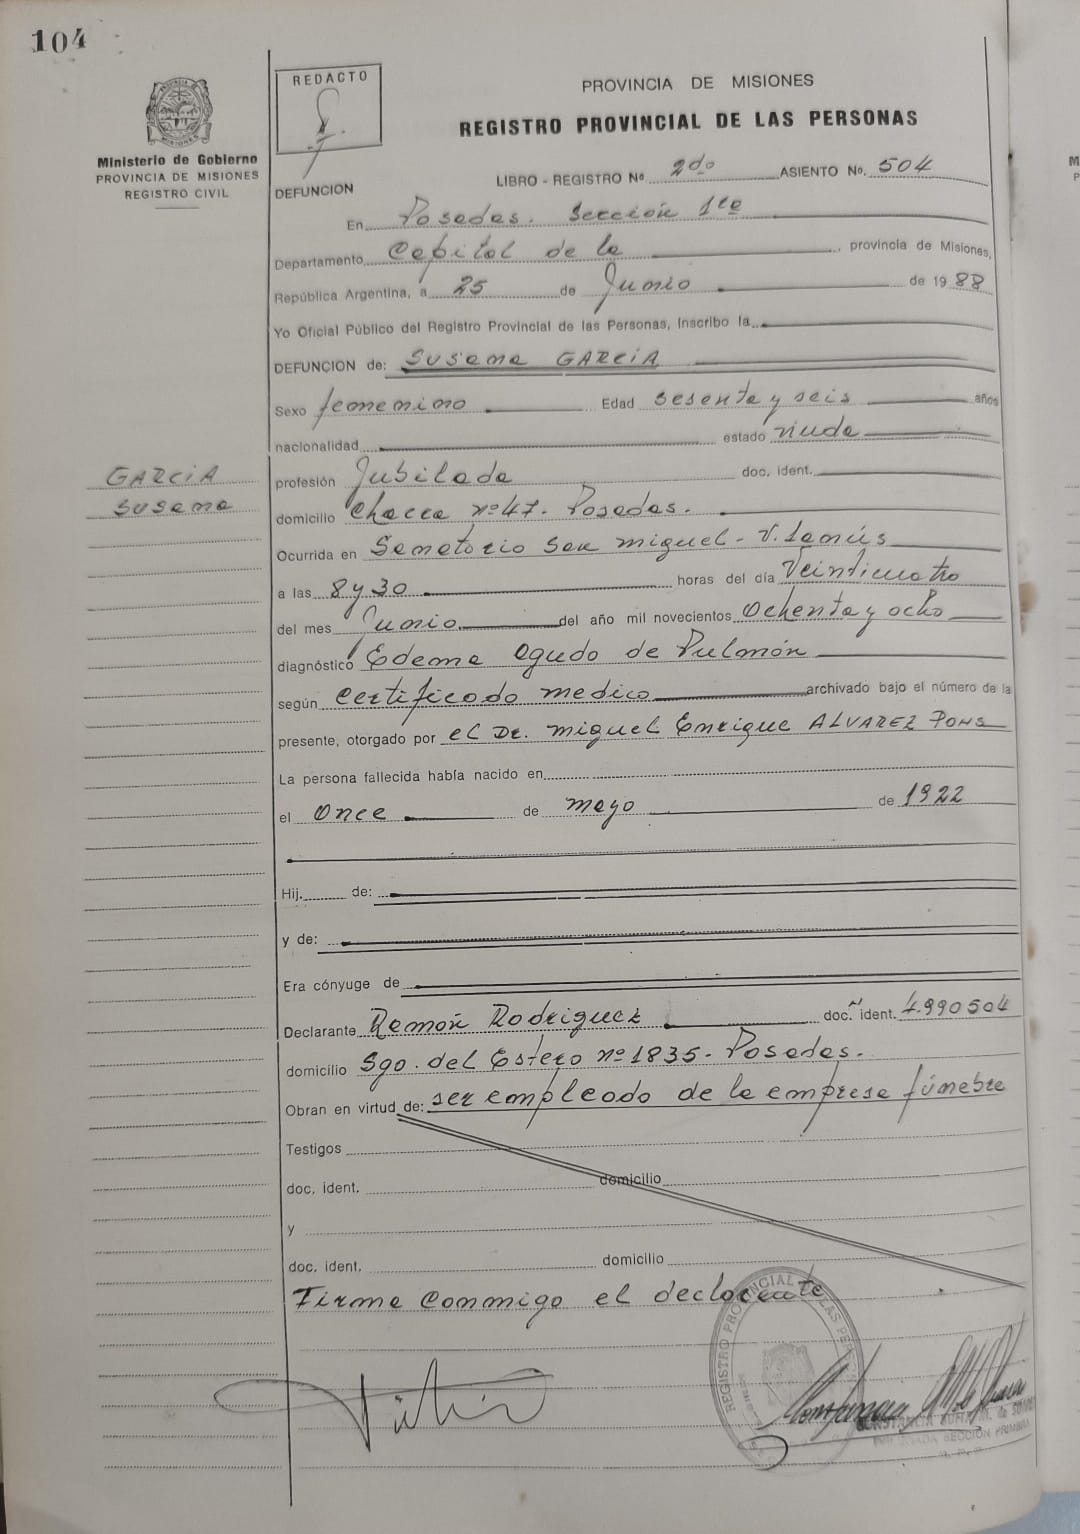 104
REDACTO
PROVINCIA DE MISIONES
REGISTRO PROVINCIAL DE LAS PERSONAS
Ministerio de Gobierno
PROVINCIA DE MISIONES
REGISTRO CIVIL
DEFUNCION
LIBRO - REGISTRO Nº 2do ASIENTO Nº. 504
En Posadas. Sección 1ra
Departamento Capital de la, provincia de Misiones,
República Argentina, a 25 de Junio de 1988
Yo Oficial Público del Registro Provincial de las Personas, Inscribo la
DEFUNCION de: Susana GARCIA
Sexo femenino Edad sesenta y seis años
nacionalidad estado viuda
GARCIA
Susana
profesión Jubilada doc. ident.
domicilio Chacra nº 47. Posadas.
Ocurrida en Sanatorio San Miguel - V. Lanús
a las 8 y 30 horas del día Veinticuatro
del mes Junio del año mil novecientos Ochenta y ocho
diagnóstico Edema Agudo de Pulmón
según certificado medico archivado bajo el número de la
presente, otorgado por el Dr. Miguel Enrique ALVAREZ PONS
La persona fallecida había nacido en
el Once de mayo de 1922
Hij. de:
y de:
Era cónyuge de
Declarante Ramón Rodriguez doc. ident. 4.990504
domicilio Sgo. del Estero nº 1835. Posadas.
Obran en virtud de: ser empleado de la empresa fúnebre
Testigos
doc. ident. domicilio
y
doc. ident. domicilio
Firma conmigo el declarante
REGISTRO PROVINCIAL DE LAS PERSONAS
SECCION PRIMERA